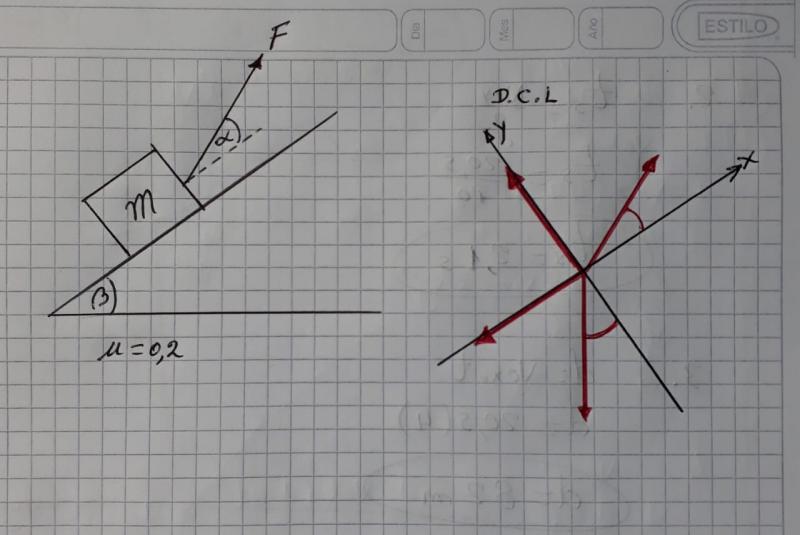 Dia
Mes
Año
ESTILO
F
α
m
β
μ = 0,2
D.C.L
y
x